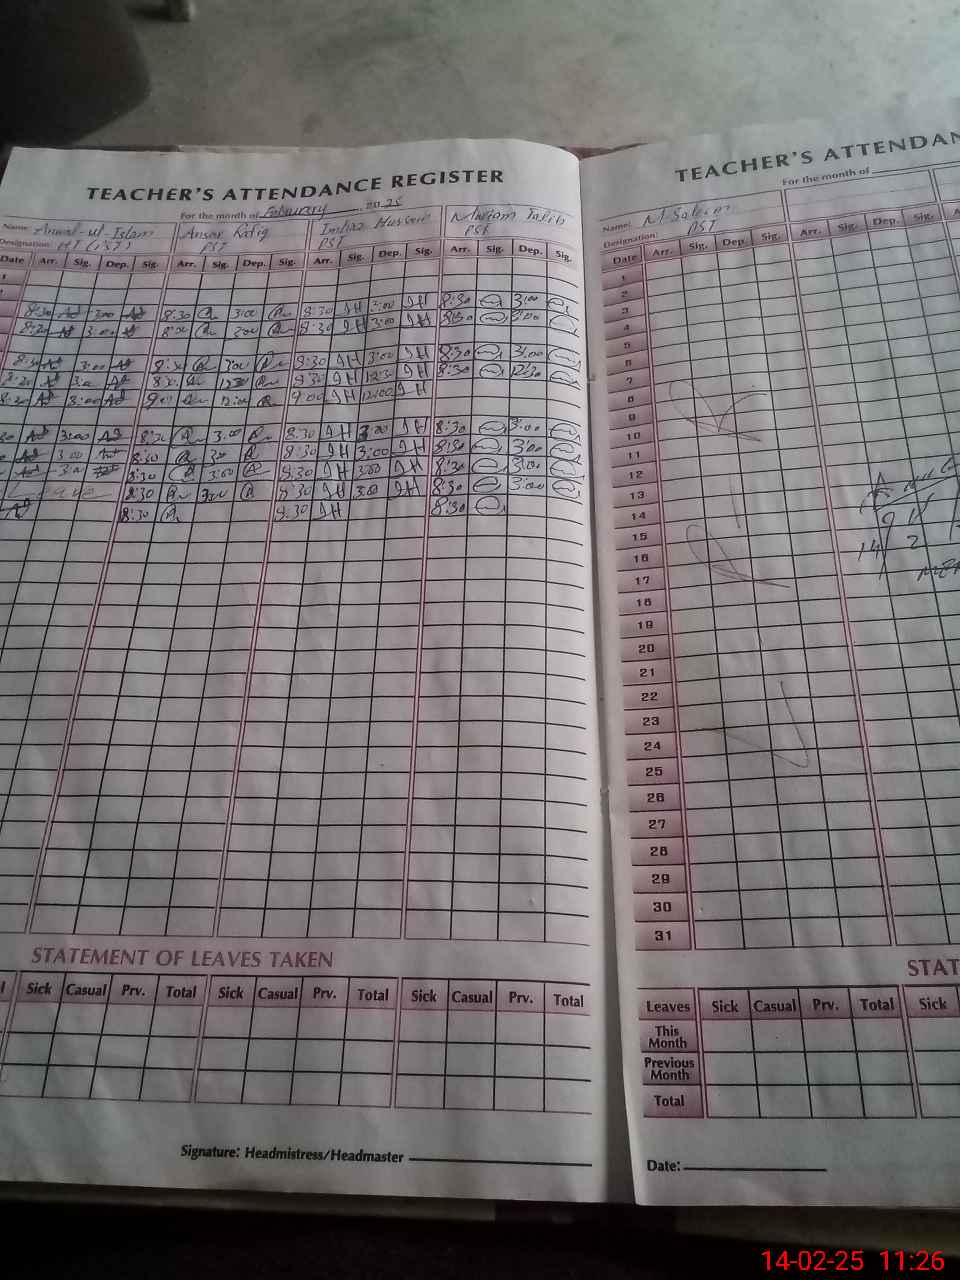 TEACHER'S ATTENDANCE REGISTER
For the month of February 2025
Name: Anwal-ul-Islam Ansar Rafiq Imtiaz Hussain Mariam Talib
Designation: HT (PST) PST PST PST
Date Arr. Sig. Dep. Sig. Arr. Sig. Dep. Sig. Arr. Sig. Dep. Sig. Arr. Sig. Dep. Sig.
1
8:30 3:00 8:30 3:00 8:30 IH 3:00 IH 8:30 3:00
8:30 3:00 8:30 3:00 8:30 IH 3:00 IH 8:30 3:00
8:30 3:00 8:30 3:00 8:30 IH 3:00 IH 8:30 3:00
8:30 3:00 8:30 12:30 8:30 IH 12:30 IH 8:30 12:30
8:30 3:00 9:00 12:00 9:00 IH 12:00 IH
3:00 8:30 3:00 8:30 IH 3:00 IH 8:30 3:00
3:00 8:30 3:00 8:30 IH 3:00 IH 8:30 3:00
3:00 8:30 3:00 8:30 IH 3:00 IH 8:30 3:00
Leave 8:30 3:00 8:30 IH 3:00 IH 8:30 3:00
8:30 8:30 IH 8:30
STATEMENT OF LEAVES TAKEN
Sick Casual Prv. Total Sick Casual Prv. Total Sick Casual Prv. Total
Signature: Headmistress/Headmaster
TEACHER'S ATTENDAN
For the month of
Name: M Saleem
Designation: PST
Date Arr. Sig. Dep. Sig. Arr. Sig. Dep. Sig.
1
2
3
4
5
6
7
8
9
10
11
12
13
14
15
16
17
18
19
20
21
22
23
24
25
26
27
28
29
30
31
STAT
Leaves Sick Casual Prv. Total Sick
This Month
Previous Month
Total
Date:
14-02-25 11:26